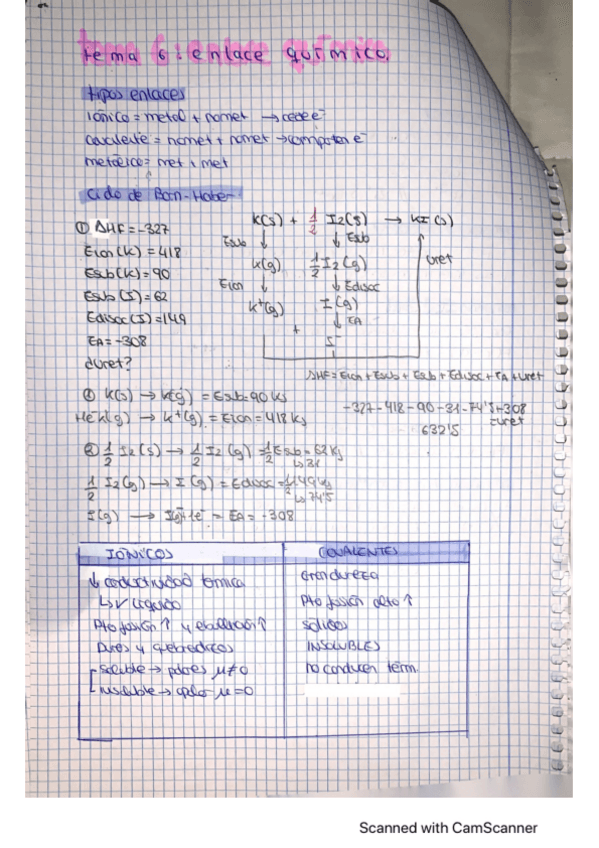 tema 6: enlace químico.
tipos enlaces
Iónico = metal + nomet → cede e⁻
covalente = nomet + nomet → comparten e⁻
metálico = met + met
Ciclo de Born-Haber
K(s) + 1/2 I2(s) → KI(s)
① ΔHF = -327
Eion(K) = 418
Esub(K) = 90
Esub(I) = 62
Edisoc(I) = 149
EA = -308
Uret?
Esub ↓ ↓ Esub
K(g) 1/2 I2(g) Uret
Eion ↓ ↓ Edisoc
K⁺(g) I(g)
↓ EA
+ I⁻
ΔHF = Eion + Esub + Esub + Edisoc + EA + Uret
① K(s) → K(g) = Esub = 90 KJ
K(g) → K⁺(g) = Eion = 418 KJ
-327-418-90-31-74'5+308
Uret
632'5
② 1/2 I2(s) → 1/2 I2(g) = 1/2 Esub = 62 KJ
↳ 31
1/2 I2(g) → I(g) = Edisoc = 1/2 149 KJ
↳ 74'5
I(g) → = EA = -308
IÓNICOS COVALENTES
↓ conductividad térmica Gran dureza
↳ V líquido Pto fusión alto ↑
Pto fusión ↑ y ebullición ↑ sólidos
Duros y quebradizos INSOLUBLES
soluble → polares μ≠0 no conducen térm.
insoluble → apolar μ=0
Scanned with CamScanner